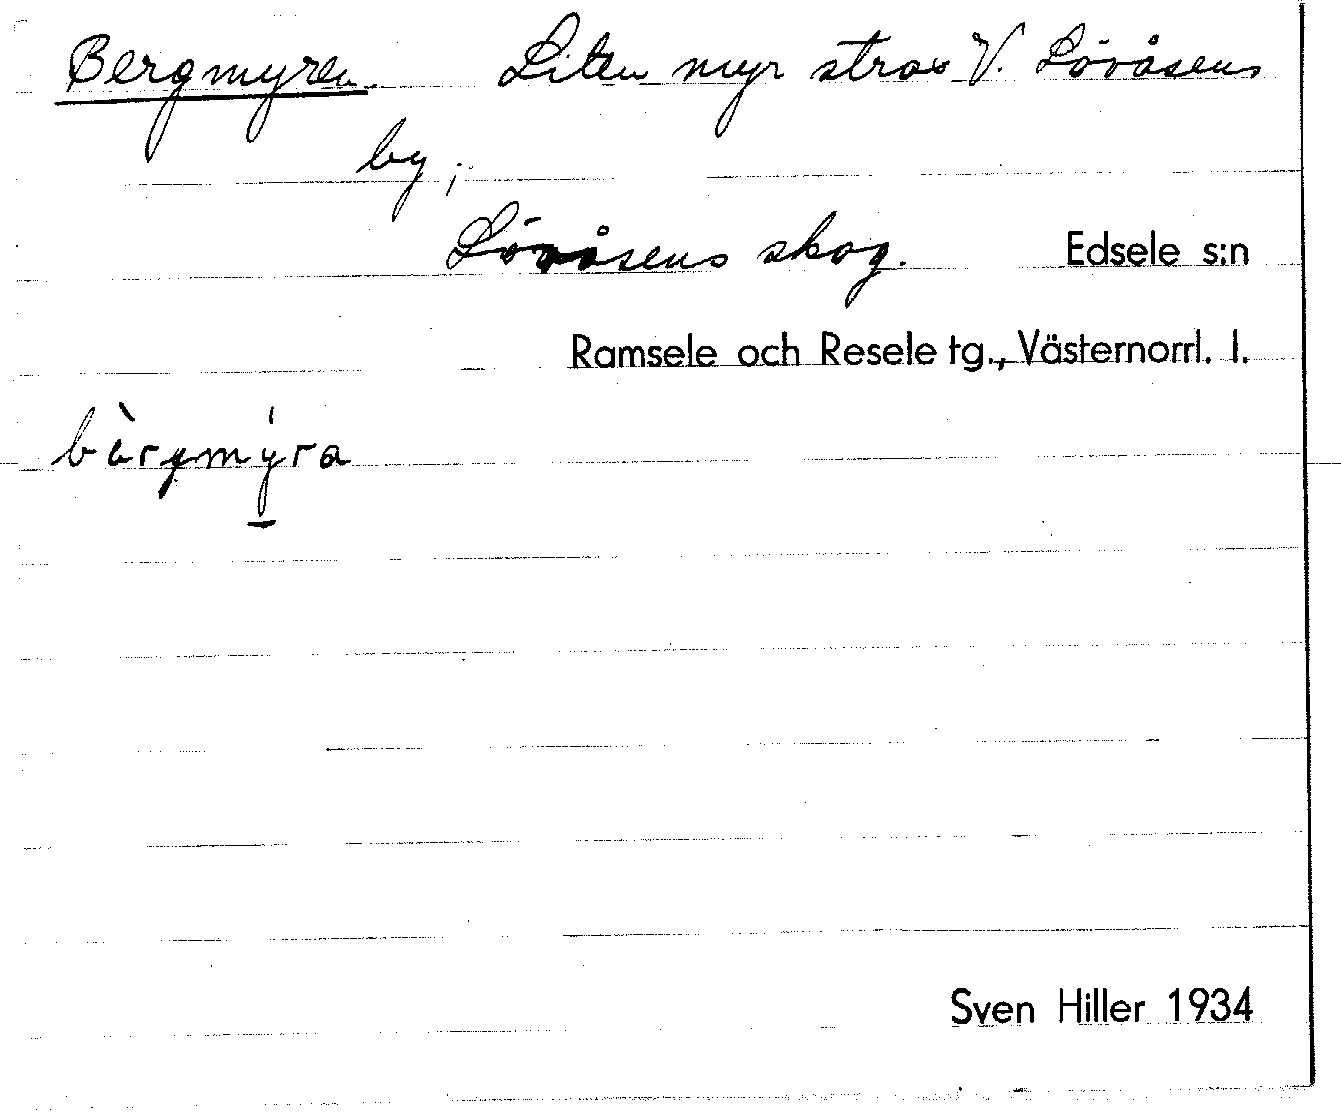 Bergmyren Liten myr strax V. Lövåsens
by;
Lövåsens skog. Edsele s:n
Ramsele och Resele tg., Västernorrl. l.
bàrgmýra
Sven Hiller 1934